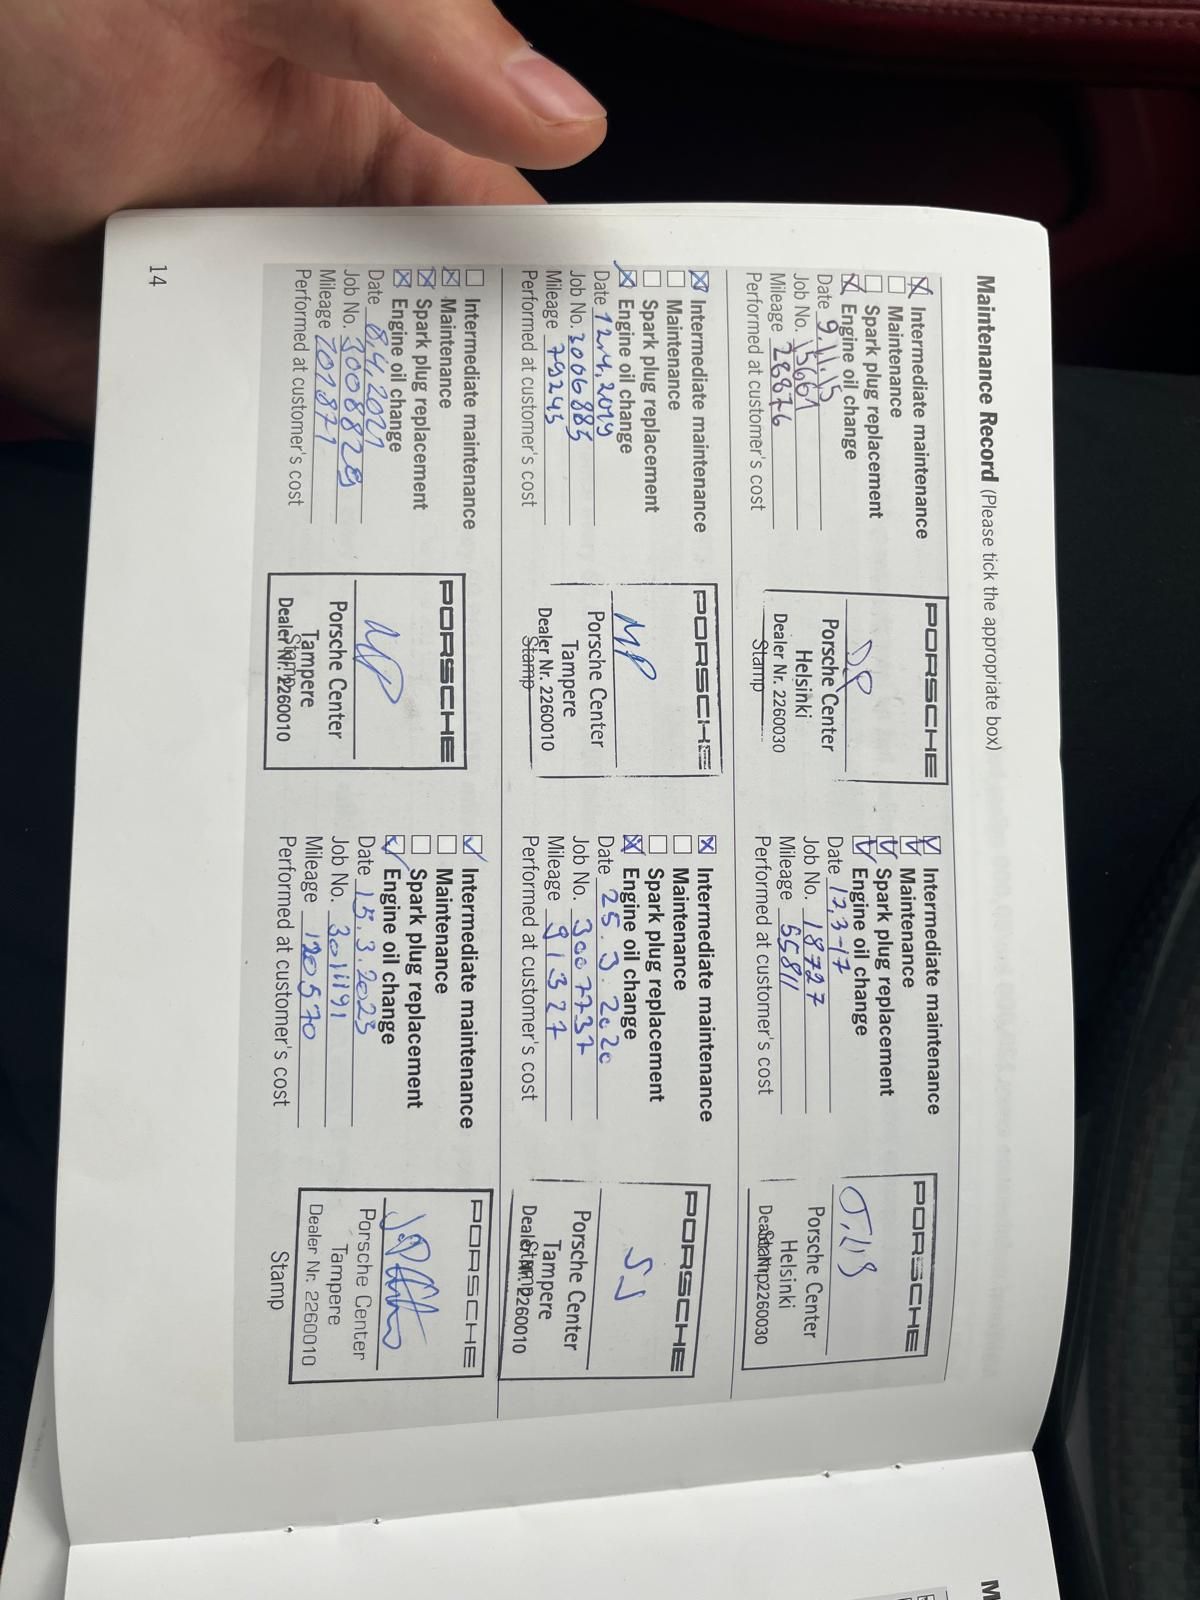 Maintenance Record (Please tick the appropriate box)
Intermediate maintenance
Maintenance
Spark plug replacement
Engine oil change
Date 9.11.15
Job No. 15661
Mileage 28876
Performed at customer's cost
PORSCHE
Porsche Center
Helsinki
Dealer Nr. 2260030
Stamp
Intermediate maintenance
Maintenance
Spark plug replacement
Engine oil change
Date 12,3-17
Job No. 18727
Mileage 55811
Performed at customer's cost
PORSCHE
Porsche Center
Helsinki
Dealer Nr. 2260030
Stamp
Intermediate maintenance
Maintenance
Spark plug replacement
Engine oil change
Date
Job No. 3006885
Mileage 79245
Performed at customer's cost
PORSCHE
MP
Porsche Center
Tampere
Dealer Nr. 2260010
Stamp
Intermediate maintenance
Maintenance
Spark plug replacement
Engine oil change
Date 25.3.2020
Job No. 3007737
Mileage 91327
Performed at customer's cost
PORSCHE
SJ
Porsche Center
Tampere
Dealer Nr. 2260010
Stamp
Intermediate maintenance
Maintenance
Spark plug replacement
Engine oil change
Date 8,4,2021
Job No. 3008829
Mileage 101.871
Performed at customer's cost
PORSCHE
MP
Porsche Center
Tampere
Dealer Nr. 2260010
Stamp
Intermediate maintenance
Maintenance
Spark plug replacement
Engine oil change
Date 15.3.2023
Job No. 3011191
Mileage 120570
Performed at customer's cost
PORSCHE
Porsche Center
Tampere
Dealer Nr. 2260010
Stamp
14
M